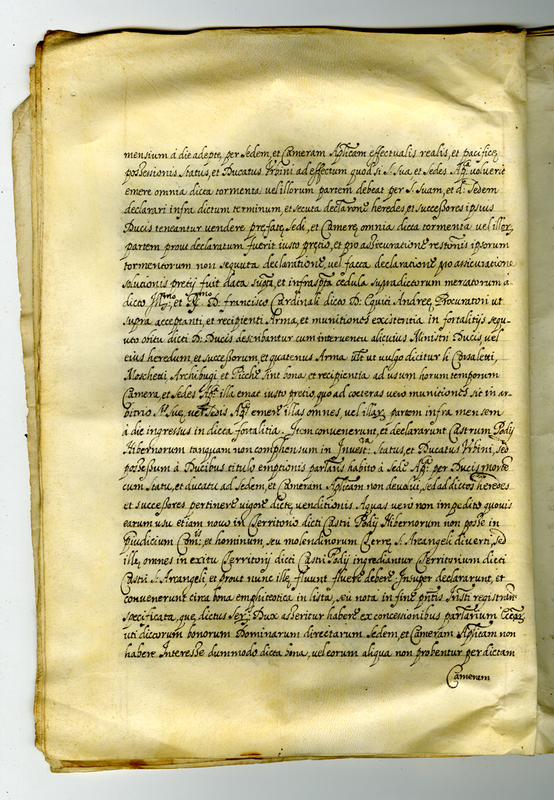 mensium á die adeptę per Sedem, et Cameram Aplicam effectualis realis, et pacificę
possessionis Status, et Ducatus Vrbini ad effectum quod si S. Sua, et Sedes Ap. voluerit
emere omnia dicta tormenta vel illorum partem debeat per S. Suam, et d. Sedem
declarari infra dictum terminum, et secuta declarone heredes, et successores ipsius
Ducis teneantur vendere prefatę Sedi, et Camerę omnia dicta tormenta vel illor.
partem prout declaratum fuerit iusto pretio, et pro assecuratione restonis ipsorum
tormentorum non sequuta declaratione, vel facta declaratione pro assecuratione
solutionis pretij fuit data supta, et infrascpta cedula supradictorum mercatorum á
dicto Illmo et Rmo D. francisco Cardinali dicto D. Equiti Andreę, Procuratori ut
supra acceptanti, et recipienti Arma, et munitiones existentia in fortalitijs sequ-
uto obitu dicti D. Ducis describantur cum interuentu alicuius Ministri Ducis, vel
eius heredum, et successorum, et quatenus Arma ut vulgo dicitur li Corsaletti,
Moschetti, Archibugi, et Picche sint bona, et recipientia ad usum horum temporum
Camera, et Sedes Ap. illa emat iusto pretio, quo ad coeteras vero munitiones sit in ar-
bitrio Sue, vel Sedis Ap. emere illas omnes, vel illar. partem infra mensem
á die ingressus in dicta fortalitia. Item conuenerunt, et declararunt Castrum Podij
Hibernorum tanquam non comphensum in Inuesta. Status, et Ducatus Vrbini, sed
possessum á Ducibus titulo emptionis habito á Sede Ap. per Ducis morte
cum Statu, et ducatu ad Sedem, et Cameram Aplicam non deuolui, sed ad dictos heredes
et successores pertinere vigore dictę venditionis Aquas vero non impedito quouis
earum usu etiam nouo in Territorio dicti Castri Podij Hibernorum non posse in
preiudicium et hominum, seu molendinorum Terre S. Arcangeli diuerti, sed
ille, omnes in exitu Territorij dicti Castri Podij ingrediantur Territorium dicti
Castri S. Arcangeli, et prout nunc ille fluunt fluere debere. Insuper declararunt, et
conuenerunt circa bona emphiteotica in lista, seu nota in fine pntis Insti registran.
specificata, que dictus Ser. Dux asseritur habere ex concessionibus
uti dictorum bonorum Dominarum directarum Sedem, et Cameram Aplicam non
habere Interesse dummodo dicta bona, vel eorum aliqua non probentur per dictam
Cameram